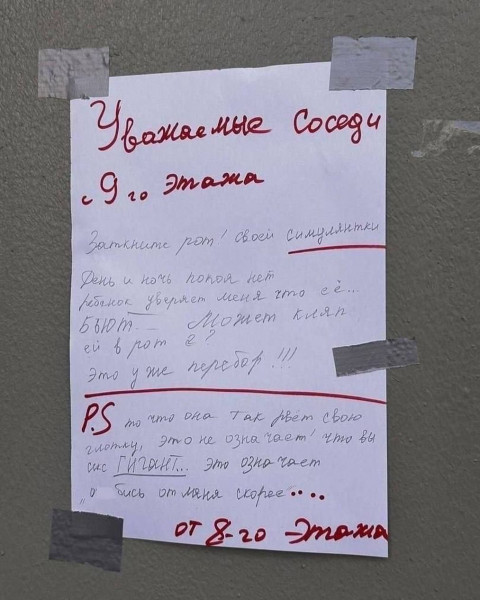 Уважаемые соседи
с 9 го этажа
Заткните рот! своей симулянтки
День и ночь покоя нет
ребёнок уверяет меня что её...
БЬЮТ... Может кляп
ей в рот ё?
Это уже перебор!!!
P.S то что она так рвёт свою
глотку, это не означает! что вы
секс ГИГАНТ... это означает
бись от меня скорее....
от 8-го этажа